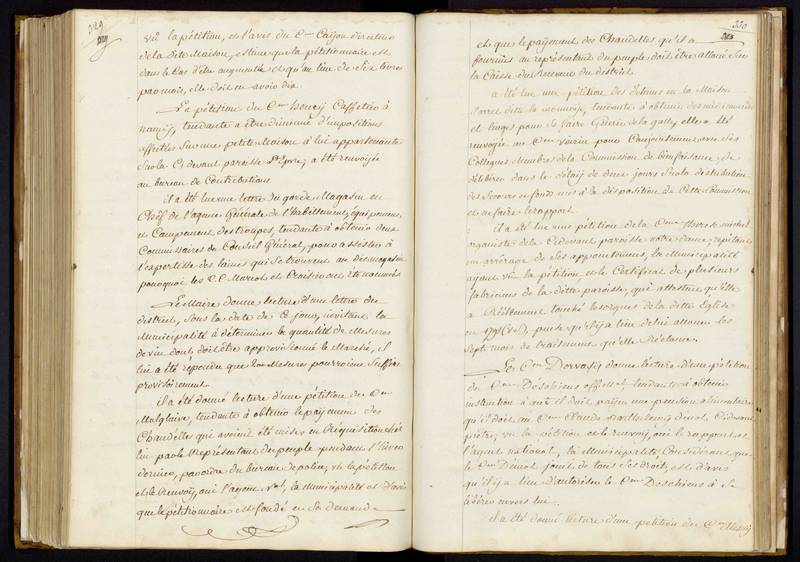 329
vû la pétition, et l'avis du C.en Caijon directeur
de la dite Maison, estime que la pétitionnaire est
dans le Cas d'être augmentée et qu'au lieu de six livres
par mois, elle doit en avoir dix
La pétition du C.en henry Caffetier à
nancy, tendante a être diminué d'impositions
affectées sur une petite Maison à lui appartenante
sur la Ci devant paroisse St Epvre; a été renvoyée
au bureau de Contributions
il a été lu une lettre du garde Magasin en
Chef de l'agence Générale de l'habillement, équipement,
et Campement des troupes, tendante à obtenir deux
Commissaires du Conseil Général, pour assister à
l'expertise des laines qui se trouvent au dit magasin
pourquoi les C.C. Mariot et Croisier ont été nommés
Le Maire donne lecture d'une lettre du
district, sous la date de ce jour, invitant la
Municipalité à déterminer la quantité de Mesures
de vin dont doit être approvisionné le Marché, il
lui a été repondu que 200 Mesures pourroient Suffire
provisoirement
il a été donné lecture d'une pétition du C.en
Malglaive, tendante à obtenir le payement des
Chandelles qui avoient été mises en Réquisition chés
lui par le Représentant du peuple pendant l'hiver
dernier, par ordre du bureau de police; vû la pétition
et le Renvoy, oui l'agent N.al, la Municipalité est d'avis
que le pétitionnaire est fondé en sa demande
330
et que le payement des Chandelles qu'il a
fournies au représentant du peuple doit être alloué sur
la Caisse du Receveur du district
a été lue une pétition des détenus en la Maison
d'arret dite la monnoye, tendante à obtenir des médicaments
et linges pour se faire Guérir de la galle, elle a été
renvoyée au C.en pour Conjointement avec ses
Collegues Membres de la Commission de bienfaisance, de
délibérer dans le délay de deux jours sur la distribution
des secours en fonds mis à la disposition de Cette Commission
et en faire le rapport
il a été lue une pétition de la C.enne therese michel
organiste de la Cidevant paroisse notre dame, répétant
un arrérage de ses appointemens, la Municipalité
ayant vû la pétition, et le Certificat de plusieurs
fabriciens de la ditte paroisse, qui attestent qu'elle
a Réellement touché les orgues de la ditte Eglise
en 1791 (v.s.), pense qu'il y a lieu de lui allouer les
sept mois de traitement qu'elle Réclame.
Le C.en Dorvasy donne lecture d'une pétition
du C.en Deschiens off. M.al tendante à obtenir
instruction à qui il doit payer une pension alimentaire
qu'il doit au C.en Claude Barthelemy Dinot, Cidevant
prêtre; vu la pétition et le renvoi, oui le rapport et
l'agent national, la Municipalité, Considérant que
le C.en Dinot jouit de tous ses droits, est d'avis
qu'il y a lieu d'autoriser le C.en Deschiens à se
libérer envers lui
il a été donné lecture d'une pétition du C.en